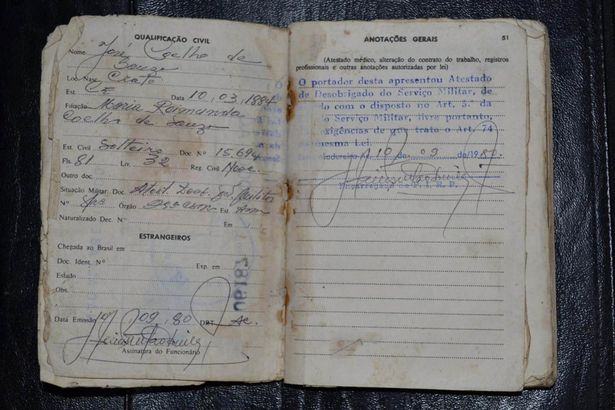 QUALIFICAÇÃO CIVIL
Nome José Coelho de
Souza
Loc. Nasc. Crato
Est. CE Data 10,03,1884
Filiação Maria Raimunda
Coelho de Souza
Est. Civil Solteiro Doc. Nº 15.694
Fls. 81 Liv. 32 Reg. Civil
Outro doc.
Situação Militar: Doc.
Nº Órgão Est.
Naturalizado Dec. Nº Em
ESTRANGEIROS
Chegada ao Brasil em
Doc. Ident. Nº Exp. em
Estado
Obs.
Data Emissão 10, 09, 80 DRT Ac.
Assinatura do Funcionário
06187
ANOTAÇÕES GERAIS 51
(Atestado médico, alteração do contrato do trabalho, registros
profissionais e outras anotações autorizadas por lei)
O portador desta apresentou Atestado
de Desobrigado do Serviço Militar, de
do com o disposto no Art. 5.º da
do Serviço Militar, livre portanto,
exigências de que trato o Art. 74
mesma Lei.
10 de 09 de 19